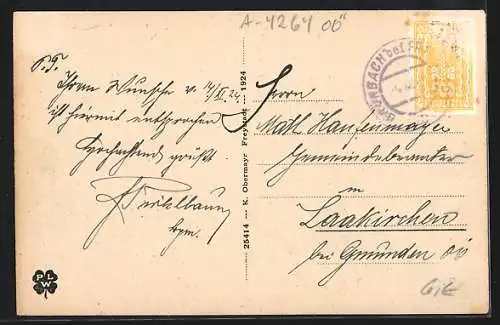 A-4264 00"
GRÜNBACH bei FR
P.T.
Ihrem Wunsche v. 14/XI. 24.
ist hiermit entsprochen
Hochachtend grüßt
25414 — K. Obermayr Freystadt — 1924
Herrn
Math Haufenmayer
Gemeindebeamter
in
Laakirchen
bei Gmünden
PLW